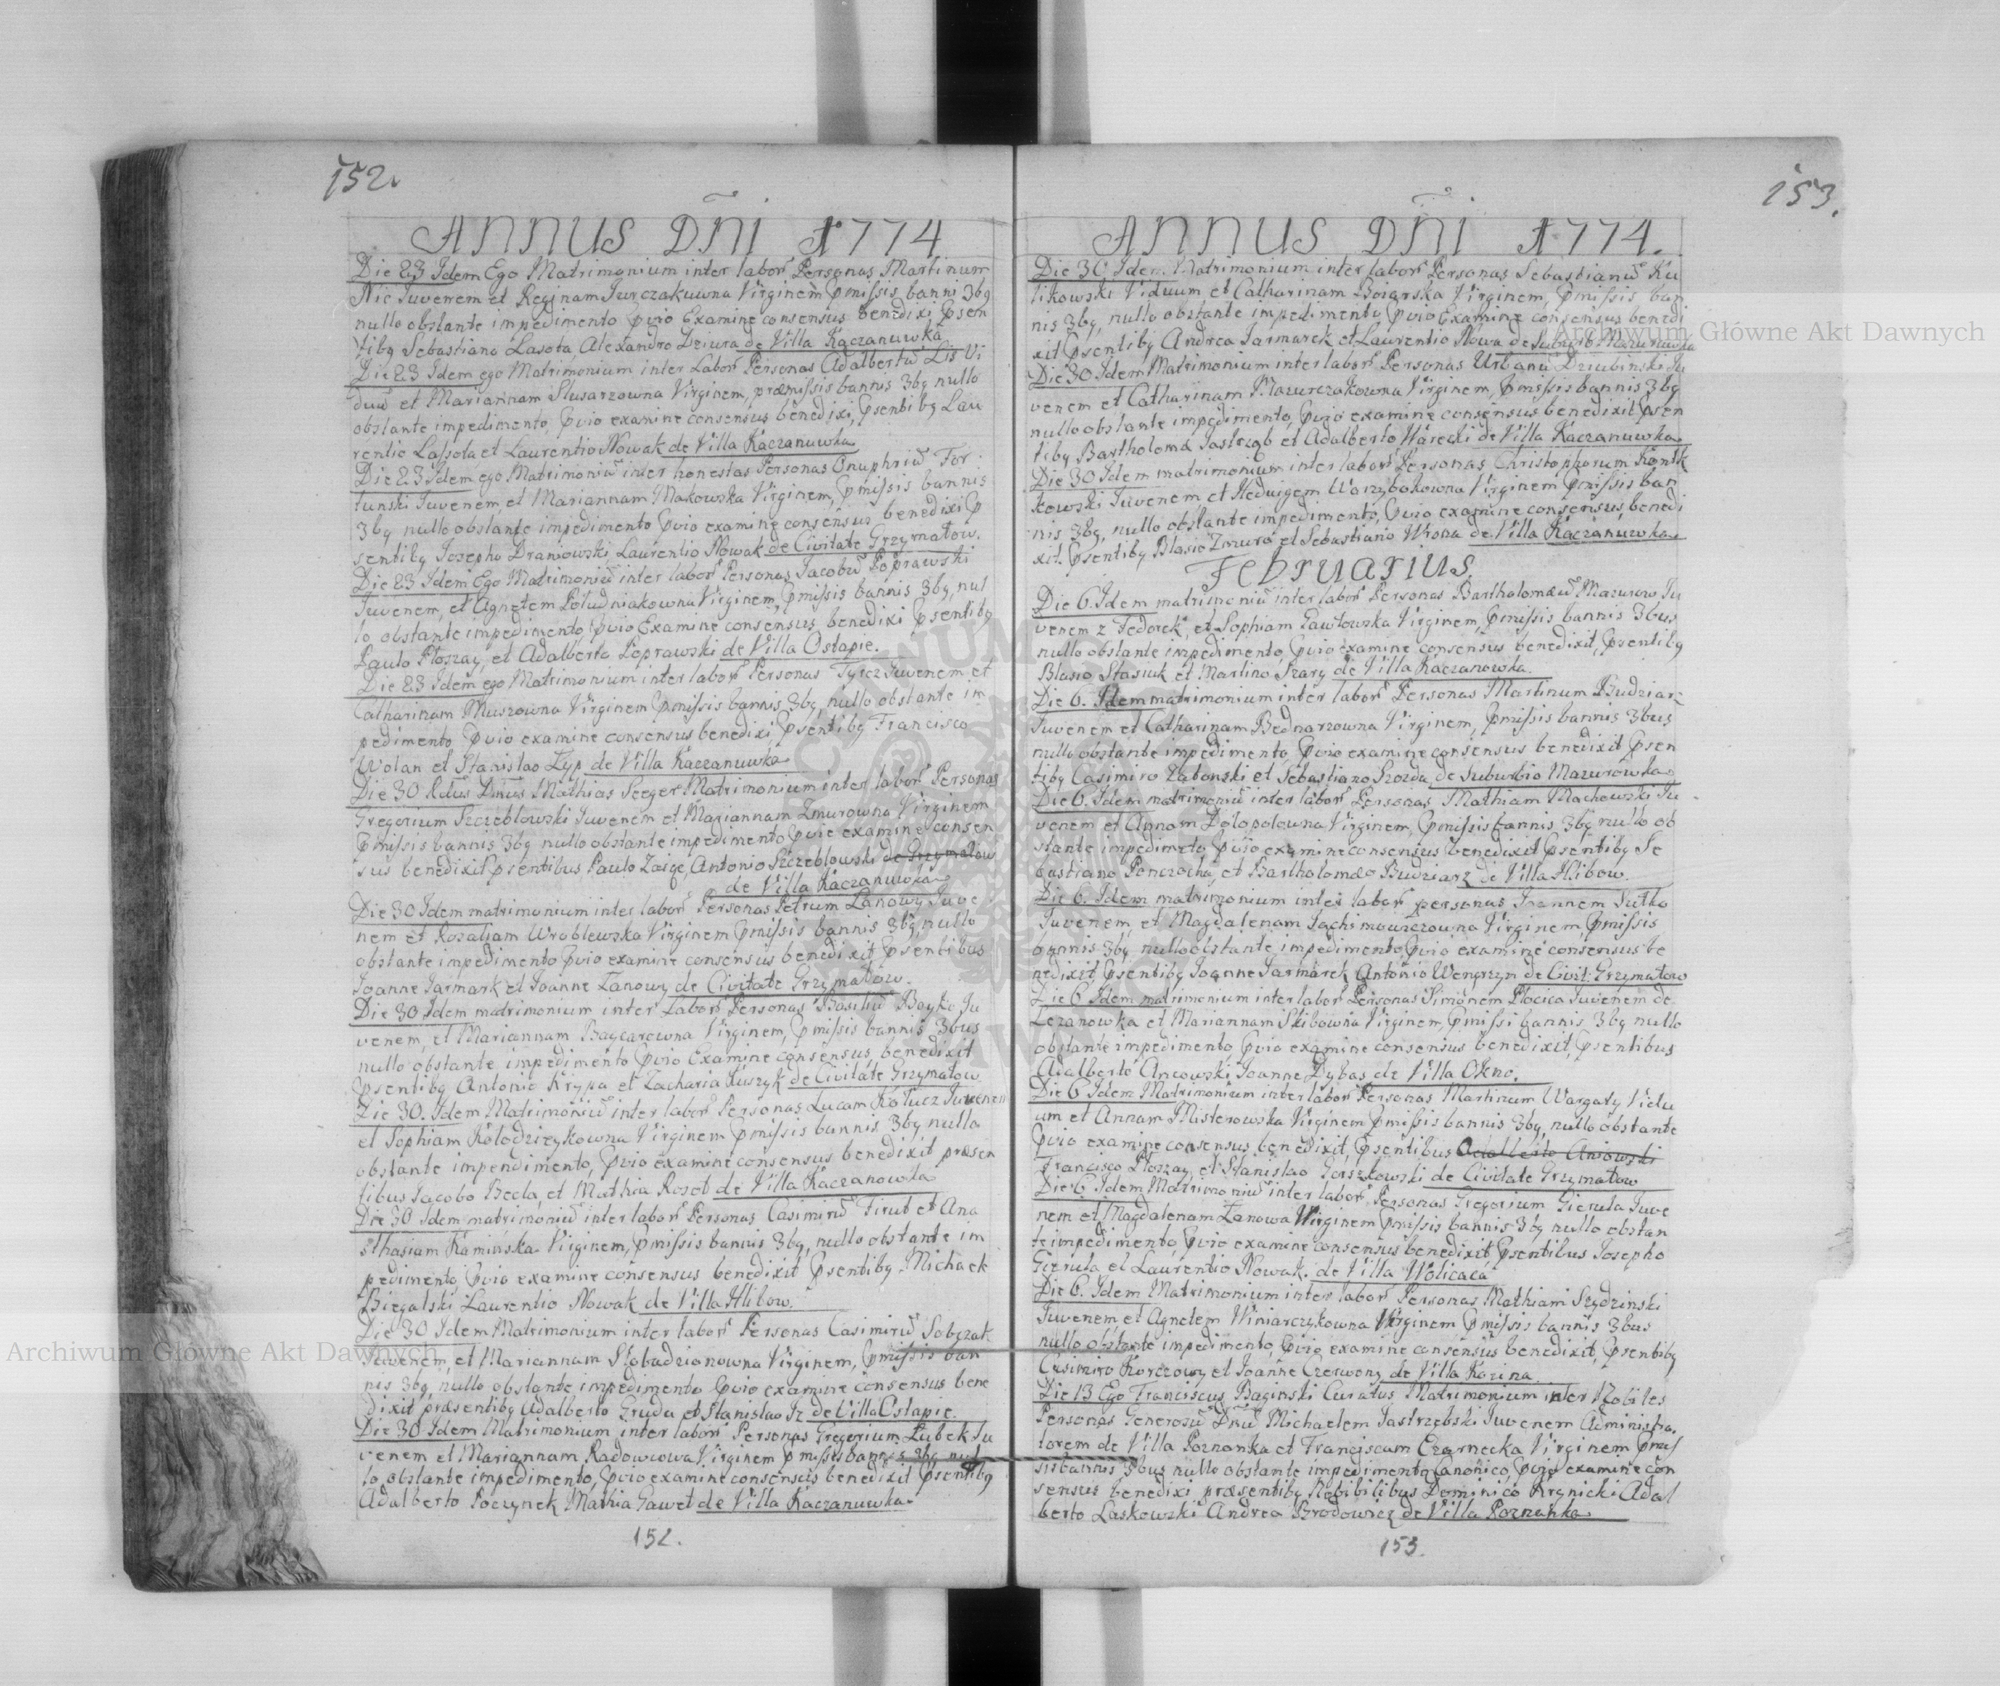 152.
ANNUS DÑI 1774
Die 23 Idem Ego Matrimonium inter labor Personas Martinum
Nic Juvenem et Reginam Jurczakuwna Virginem pmissis banni 3bq
nullo obstante impedimento pvio Examine consensus benedixi psen
tibq Sebastiano Lasota Alexandro Dziura de Villa Kaczanuwka
Die 23 Idem ego Matrimonium inter Labor Personas Adalbertū Lis Vi
duū et Mariannam Slusarzowna Virginem, præmissis bannis 3bq nullo
obstante impedimento pvio examine consensus benedixi, psentibq Lau
rentio Lassota et Laurentio Nowak de Villa Kaczanuwka
Die 23 Idem ego Matrimoniū inter honestas Personas Onuphriū For
tunski Juvenem, et Mariannam Makowska Virginem, pmissis bannis
3bq nullo obstante impedimento pvio examine consensus benedixi p
sentibq Josepho Draniowski Laurentio Nowak de Civitate Grzymałow.
Die 23 Idem Ego Matrimoniū inter labor Personas Jacobū Poprawski
Juvenem, et Agnetem Południakowna Virginem, pmissis bannis 3bq, nul
lo obstante impedimento, pvio Examine consensus benedixi psentibq
Paulo Płoszay, et Adalberto Poprawski de Villa Ostapie.
Die 23 Idem ego Matrimonium inter labor Personas Tyrcz Juvenem et
Catharinam Muszowna Virginem pmissis bannis 3bq, nullo obstante im
pedimento pvio examine consensus benedixi psentibq Francisco
Wolan et Stanislao Zyp de Villa Kaczanuwka
Die 30 Rdus Dnus Mathias Seeger Matrimonium inter labor Personas
Gregorium Szczeblowski Juvenem et Mariannam Zmurowna Virginem
Pmissis bannis 3bq nullo obstante impedimento pvio examine consen
sus benedixit psentibus Paulo Zaige, Antonio Szczeblowski de Grzymałow
de Villa Kaczanuwka
Die 30 Idem matrimonium inter labor Personas Petrum Lanowy Juve
nem et Rozaliam Wroblewska Virginem pmissis bannis 3bq nullo
obstante impedimento pvio examine consensus benedixit psentibus
Joanne Jarmark et Joanne Lanowy de Civitate Grzymałow.
Die 30 Idem matrimonium inter labor Personas Basiliū Boyko Ju
venem, et Mariannam Baycarowna Virginem, pmissis bannis 3bus
nullo obstante impedimento pvio Examine consensus benedixit
psentibq Antonio Krypa et Zacharia Kuszyk de Civitate Grzymałow
Die 30. Idem Matrimoniū inter labor Personas Lucam Kołucz Juvenem
et Sophiam Kołodzieykowna Virginem pmissis bannis 3bq nullo
obstante impendimento, pvio examine consensus benedixit præsen
tibus Jacobo Becla, et Mathia Rosoł de Villa Kaczanowka
Die 30 Idem matrimoniū inter labor Personas Casimirū Firut et Ana
sthasiam Kaminska Virginem, pmissis bannis 3bq, nullo obstante im
pedimento pvio examine consensus benedixit psentibq Michaele
Biegalski Laurentio Nowak de Villa Hlibow.
Die 30 Idem Matrimonium inter labor Personas Casimirū Sobczak
Juvenem, et Mariannam Słobudzianowna Virginem, pmissis ban
nis 3bq, nullo obstante impedimento pvio examine consensus bene
dixit præsentibq Adalberto Gruda et Stanislao Iz de Villa Ostapie.
Die 30 Idem Matrimonium inter labor Personas Gregorium Lubek Ju
venem et Mariannam Radowiowa Virginem pmissis bannis 3bq nul
lo obstante impedimento, pvio examine consensus benedixit psentibq
Adalberto Poczynek Mathia Gaweł de Villa Kaczanuwka
152.
153.
ANNUS DÑI 1774.
Die 30 Idem Matrimonium inter labor Personas Sebastianū Ku
likowski Viduum et Catharinam Boiarska Virginem, pmissis ban
nis 3bq, nullo obstante impedimento pvio Examine consensus benedi
xit psentibq Andrea Jarmarek et Laurentio Nowa de Suburbio Mazurowka
Die 30 Idem Matrimonium inter labor Personas Urbanū Dziubinski Ju
venem et Catharinam Mazurczakowna Virginem, pmissis bannis 3bq
nullo obstante impedimento, pvio examine consensus benedixit psen
tibq Bartholomæ Jastrząb et Adalberto Harecki de Villa Kaczanuwka
Die 30 Idem matrimonium inter labor Personas Christophorum Kontk
kowski Juvenem et Hedvigem Warzybokowna Virginem pmissis ban
nis 3bq, nullo obstante impedimento, pvio examine consensus, benedi
xit psentibq Blasio Zmura et Sebastiano Wrona de Villa Kaczanuwka
FEBRUARIUS
Die 6. Idem matrimoniū inter labor Personas Bartholomæū Mazurow Ju
venem z Fedorek, et Sophiam Gawłowska Virginem, pmissis bannis 3bus
nullo obstante impedimento, pvio examine consensus benedixit, psentibq
Blasio Stasiuk et Martino Szary de Villa Kaczanowka
Die 6. Idem matrimonium inter labor Personas Martinum Budziarz
Juvenem et Catharinam Bednarzowna Virginem, pmissis bannis 3bus
nullo obstante impedimento, pvio examine consensus benedixit psen
tibq Casimiro Ząbonski et Sebastiano Szozda de Suburbio Mazurowka
Die 6. Idem matrimoniū inter labor Personas Mathiam Machowski Ju
venem et Annam Połopołowna Virginem, pmissis bannis 3bq nullo ob
stante impedimeto, pvio examine consensus benedixit psentibq Se
bastiano Ponczocha, et Bartholomæo Budziarz de Villa Hlibow.
Die 6. Idem matrimonium inter labor personas Joannem Sutko
Juvenem, et Magdalenam Jachimowiczowna Virginem pmissis
bannis 3bq nullo obstante impedimento, pvio examine consensus be
nedixit psentibq Joanne Jarmarek Antonio Wengrzyn de Civit: Grzymałow
Die 6 Idem matrimonium inter labor Personas Simonem Płocica Juvenem de
Lezanowka et Mariannam Skibowna Virginem, pmissi bannis 3bq nullo
obstante impedimento, pvio examine consensus benedixit, psentibus
Adalberto Ancowski Joanne Dybas de Villa Okno.
Die 6 Idem Matrimonium inter labor Personas Martinum Wargaty Vidu
um et Annam Misterowska Virginem pmissis bannis 3bq, nullo obstante
pvio examine consensus benedixit, psentibus Adalberto Aniowski
Francisco Płoszay, et Stanislao Gorszkowski de Civitate Grzymałow
Die 6 Idem Matrimoniū inter labor Personas Gregorium Gierula Juve
nem et Magdalenam Łanowa Virginem pmissis bannis 3bq nullo obstan
te impedimento pvio examine consensus benedixit psentibus Josepho
Gierula et Laurentio Nowak. de Villa Wolicaca
Die 6. Idem Matrimonium inter labor Personas Mathiam Szydzinski
Juvenem et Agnetem Winiarczykowna Virginem pmissis bannis 3bus
nullo obstante impedimento, pvio examine consensus benedixit, psentibq
Casimiro Korczowy et Joanne Czerweny de Villa Kozina
Die 13 Ego Franciscus Baginski Curatus Matrimonium inter Nobiles
Personas Generosū Dnū Michaelem Jastrzębski Juvenem Administra.
torem de Villa Poznanka et Franciscam Czarnecka Virginem pmis
sis bannis 3bus nullo obstante impedimento Canonico, pvio examine con
sensus benedixi præsentibq Nobibilibus Dominico Krynicki Adal
berto Laskowski Andrea Brodowicz de Villa Poznanka
153.
Archiwum Główne Akt Dawnych
Archiwum Główne Akt Dawnych